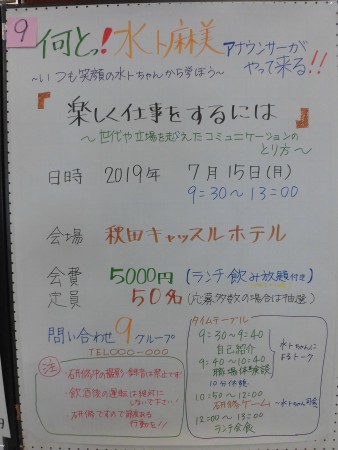 9
何とっ!水卜麻美アナウンサーが
やって来る!!
~いつも笑顔の水トちゃんから学ぼう~
『楽しく仕事をするには
~世代や立場を超えたコミュニケーションの
とり方~
日時 2019年 7月15日(月)
9:30~13:00
会場 秋田キャッスルホテル
会費 5000円(ランチ飲み放題付き)
定員 50名(応募多数の場合は抽選)
問い合わせ 9グループ
TEL000-000
注
・研修中の撮影・録音は禁止です!
・飲酒後の運転は絶対に
しないで下さい!
・研修ですので節度ある
行動を!!
タイムテーブル
9:30~9:40
自己紹介
9:40~10:40
職場体験談
水トちゃんに
よるトーク
10分休憩
10:50~12:00
研修ゲーム
水トちゃん司会
12:00~13:00
ランチ会食